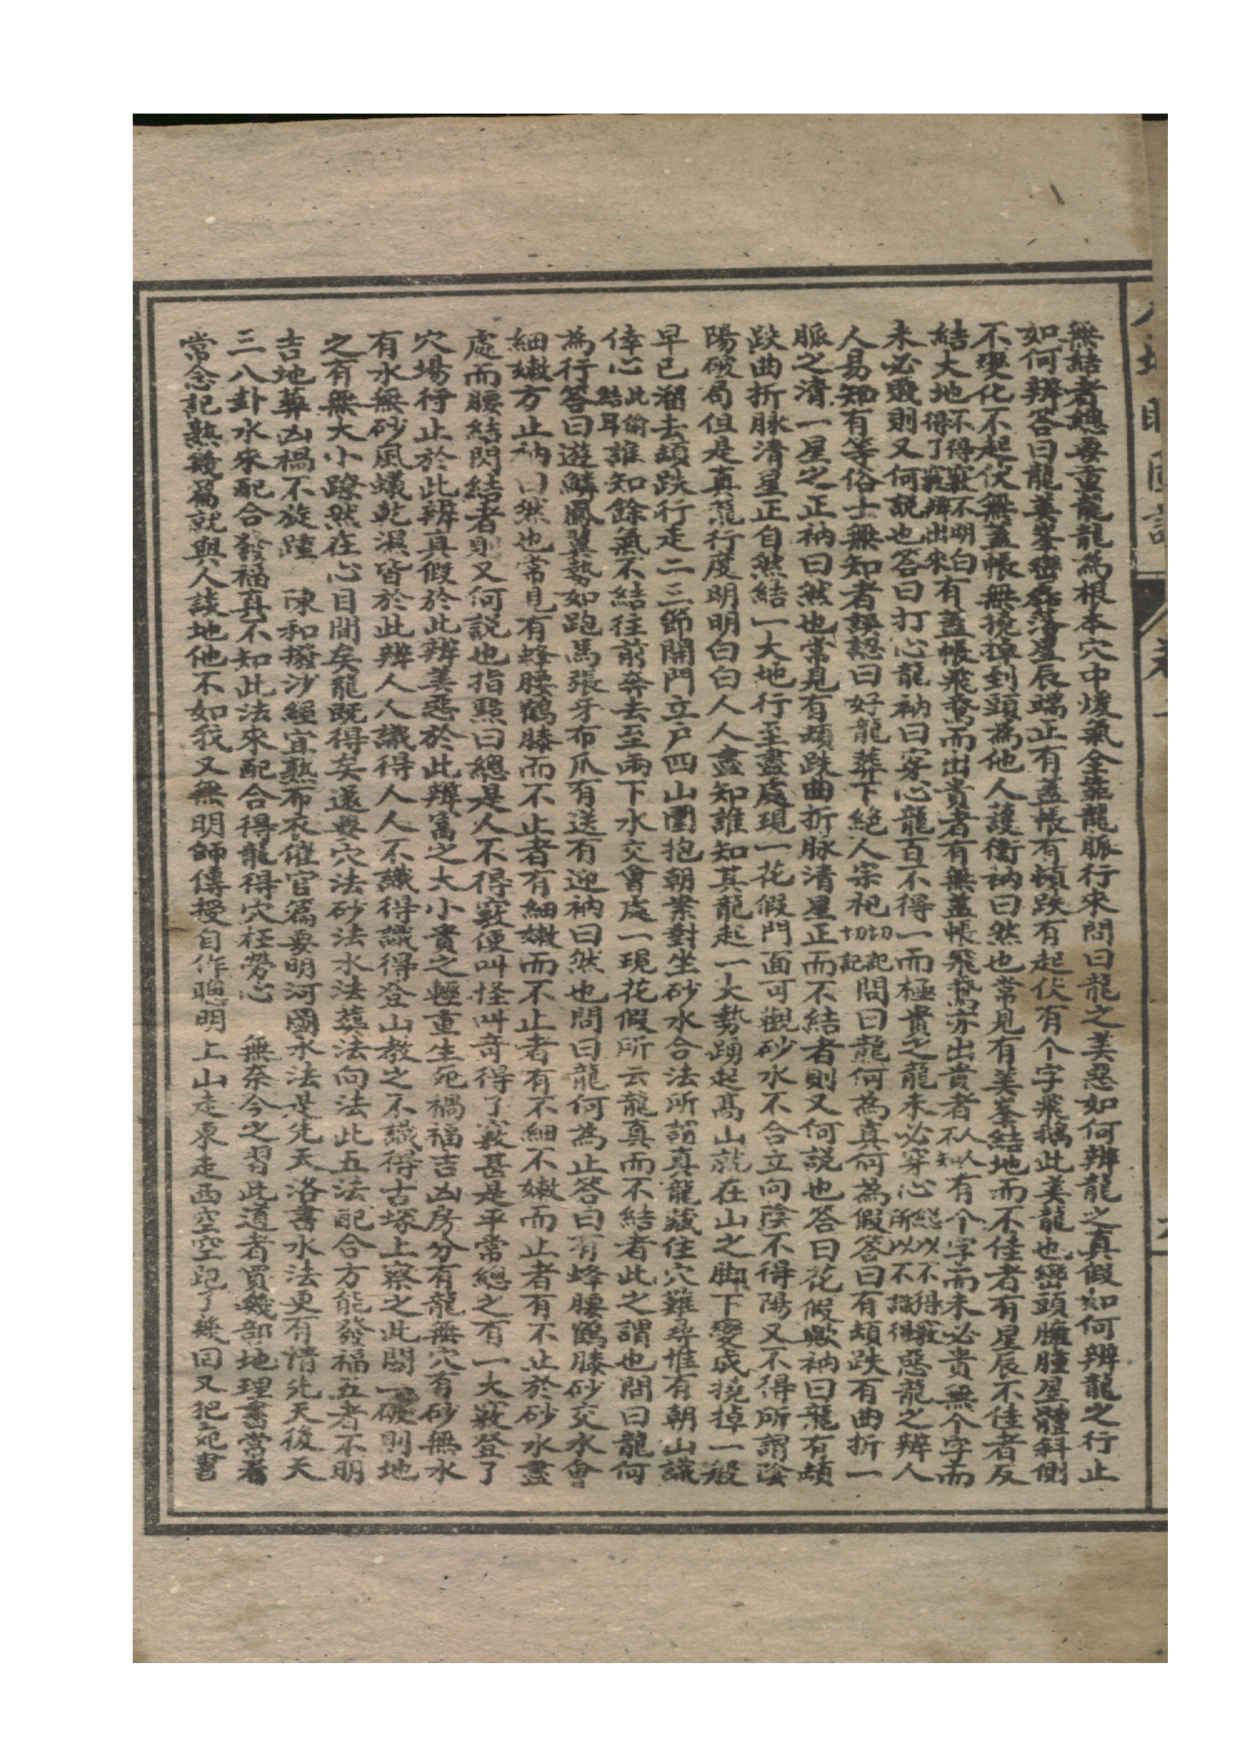 無結者總要重龍龍為根本穴中煖氣全靠龍脈行來問曰龍之美惡如何辨龍之真假如何辨龍之行止
如何辨答曰龍美峯巒磊落星辰端正有蓋帳有頓跌有起伏有个字飛鵝此美龍也巒頭臃腫星體斜側
不變化不起伏無蓋帳無撓棹到頭為他人護衛衲曰然也常見有美峯結地而不佳者有星辰不佳者反
結大地怀得竅不明白得了竅辨出來有蓋帳飛鵞而出貴者有無蓋帳飛鵞亦出貴者有个字而未必貴無个字而
未必賤則又何說也答曰打心龍衲曰穿心龍百不得一而極貴之龍未必穿心總以不得竅所以不識得惡龍之辨人
人易知有等俗士無知者誤認曰好龍葬下絕人宗祀切記切記問曰龍何為真何為假答曰有頓跌有曲折一
脈之清一星之正衲曰然也常見有頓跌曲折脉清星正而不結者則又何說也答曰花假歟衲曰龍有頓
跌曲折脉清星正自然結一大地行至盡處現一花假門面可觀砂水不合立向陰不得陽又不得所謂陰
陽破局但是真龍行度明明白白人人盡知誰知其龍起一大勢踴起高山就在山之脚下變成撓掉一般
早已溜去頓跌行走二三節開門立戶四山圍抱朝案對坐砂水合法所謂真龍藏住穴難尋惟有朝山識
倖心此偷結耳誰知餘氣不結往前奔去至兩下水交會處一現花假所云龍真而不結者此之謂也問曰龍何
為行答曰遊鱗鳳翼勢如跑馬張牙布爪有送有迎衲曰然也問曰龍何為止答曰有蜂腰鶴膝砂交水會
細嫩方止衲曰然也常見有蜂腰鶴膝而不止者有細嫩而不止者有不細不嫩而止者有不止於砂水盡
處而腰結閃結者則又何說也指點曰總是人不得竅便叫怪叫奇得了竅甚是平常總之有一大竅登了
穴場行止於此辨真假於此辨美惡於此辨富之大小貴之輕重生死禍福吉凶房分有龍無穴有砂無水
有水無砂風蟻乾濕皆於此辨人人識得人人不識得識得登山教之不識得古塚上察之此關一破則地
之有無大小瞭然在心目間矣龍既得矣還要穴法砂法水法葬法向法此五法配合方能發福五者不明
吉地葬凶禍不旋踵　陳和撥沙經宜熟布衣催官為要明河圖水法是先天洛書水法更有情先天後天
三八卦水來配合發福真不知此法來配合得龍得穴枉勞心　無奈今之習此道者買幾部地理書常看
常念記熟幾篇就與人談地他不如我又無明師傳授自作聰明上山走東走西空空跑了幾回又把死書